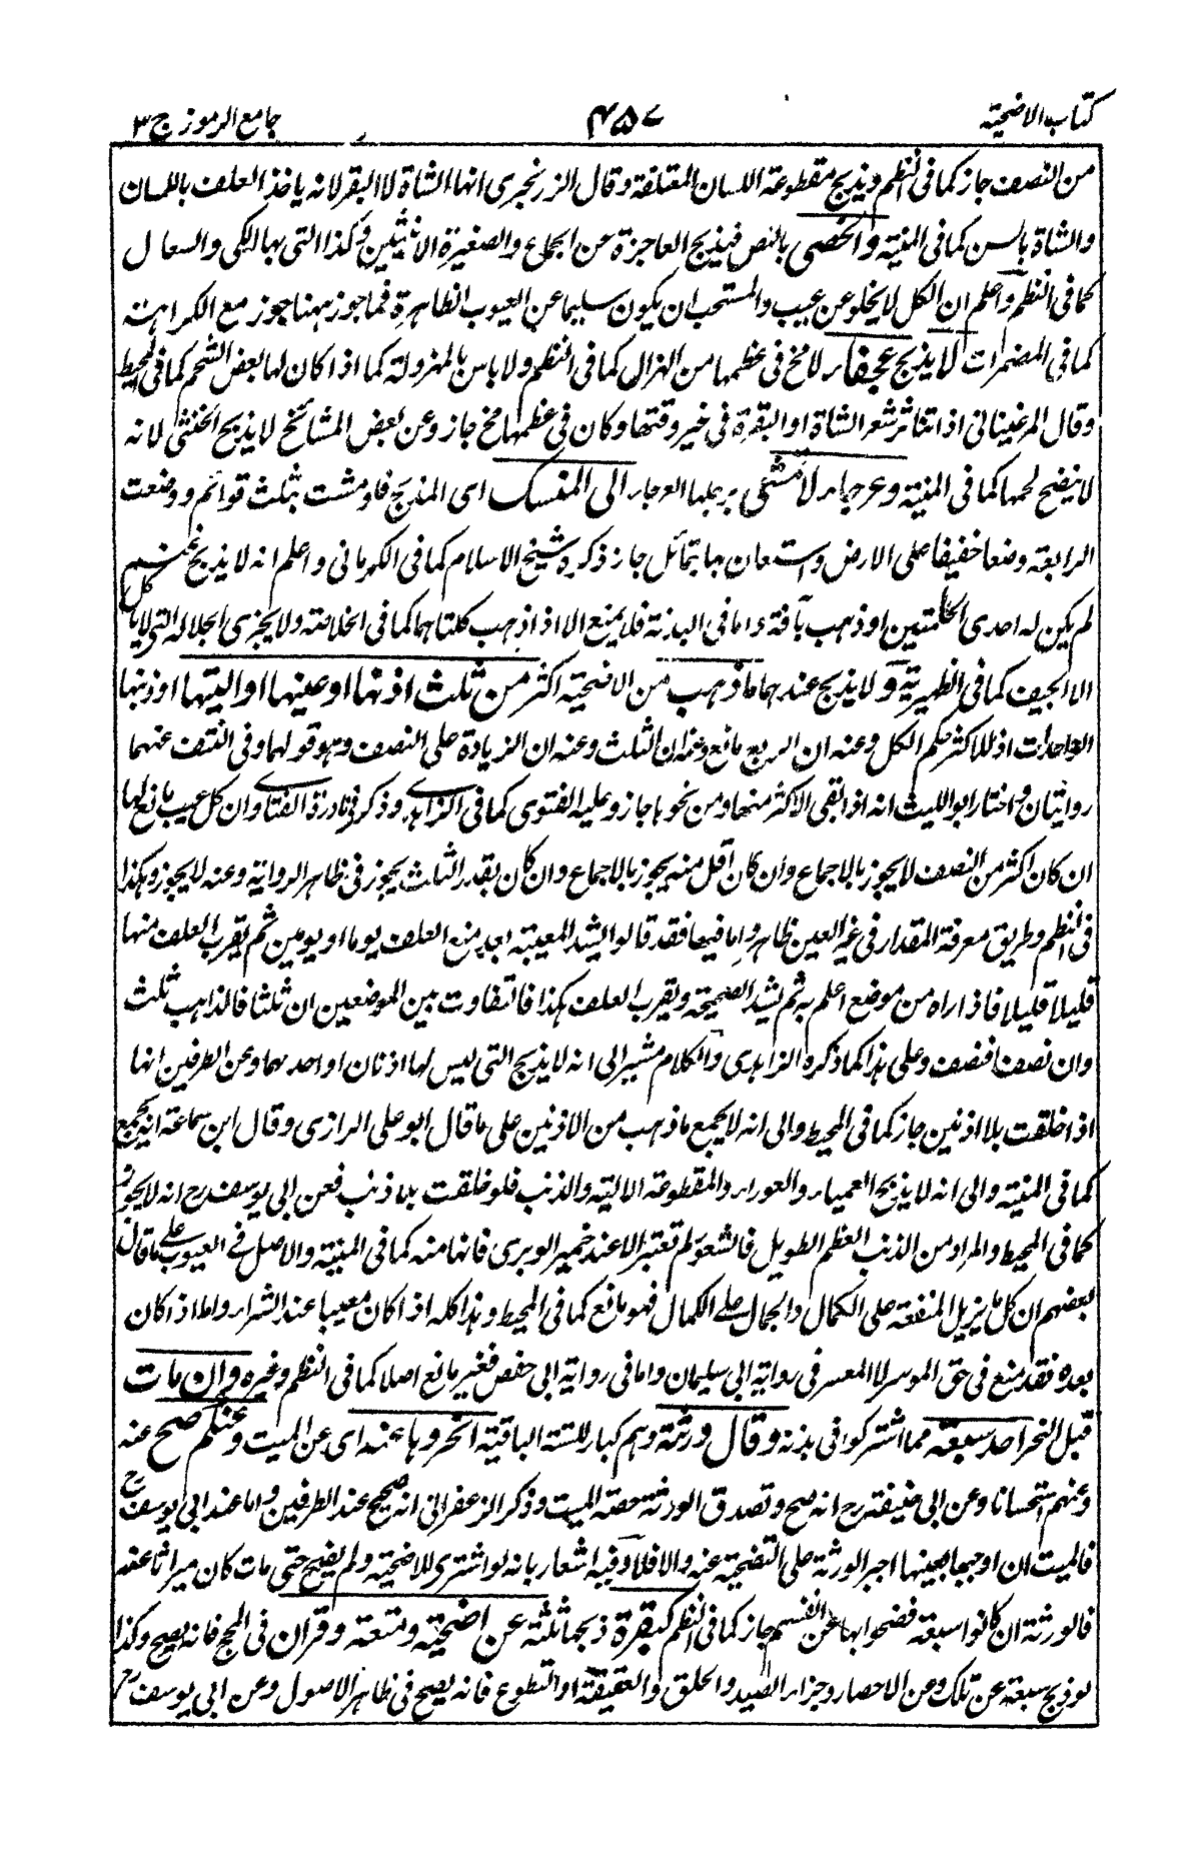 كتاب الاضحية ٤٥٧ جامع الرموز ج ٣
من النصف جاز كما فى النظم ويذبح مقطوعة اللسان المعتلفة وقال الزرنجرى انها الشاة لا البقر لانه ياخذ العلف باللسان
والشاة بالسن كما فى المنية والخصى بالنص فيذبح العاجزة عن الجماع والصغيرة الانثيين وكذا التى بها الكى والسعال
كما فى النظم واعلم ان الكل لا يخلو عن عيب والمستحب ان يكون سليما عن العيوب الظاهرة فما جوز ههنا جوز مع الكراهة
كما فى المضمرات لا يذبح عجفاء لا مخ فى عظمها من الهزال كما فى النظم ولا باس بالمهزولة كما اذا كان لها بعض الشحم كما فى المحيط
وقال المرغينانى اذا تناثر شعر الشاة او البقرة فى غير وقتها وكان فى عظمها مخ جاز وعن بعض المشائخ لا يذبح الخنثى لانه
لا ينضج لحمها كما فى المنية وعرجاء لا تمشى برجلها العرجاء الى المنسك اى المذبح فلو مشت بثلث قوائم ووضعت
الرابعة وضعا خفيفا على الارض واستعان بها بتمائل جاز ذكره شيخ الاسلام كما فى الكرمانى واعلم انه لا يذبح غنم
لم يكن له احدى الحلمتين او ذهب بآفة واما فى البدنة فلا يمنع الا اذا ذهب كلتاهما كما فى الخلاصة ولا يجزى الجلالة التى لا تاكل
الا الجيف كما فى الظهيرية ولا يذبح عندهما ما ذهب من الاضحية اكثر من ثلث اذنها او عينها او اليتها او ذنبها
الواحدات اذ للاكثر حكم الكل وعنه ان الربع مانع وعنه ان الثلث وعنه ان الزيادة على النصف وهو قولهما وفى النتف عنهما
روايتان واختار ابو الليث انه اذا بقى الاكثر منها ومن نحوها جاز وعليه الفتوى كما فى الزاهدى وذكر فى نادرة الفتاوى ان كل عيب مانع لها
ان كان اكثر من النصف لا يجوز بالاجماع وان كان اقل منه يجوز بالاجماع وان كان بقدر الثلث يجوز فى ظاهر الرواية وعنه لا يجوز وهكذا
فى النظم وطريق معرفة المقدار فى غير العين ظاهر واما فيها فقد قالوا يشد المعيبة بعد منع العلف يوما او يومين ثم يقرب العلف منها
قليلا قليلا فاذا راه من موضع اعلم به ثم يشد الصحيحة ويقرب العلف هكذا فالتفاوت بين الموضعين ان ثلثا فالذاهب ثلث
وان نصفا فنصف وعلى هذا كما ذكره الزاهدى والكلام مشير الى انه لا يذبح التى ليس لها اذنان او احدهما وعن الطرفين انها
اذا خلقت بلا اذنين جاز كما فى المحيط والى انه لا يجمع ما ذهب من الاذنين على ما قال ابو على الرازى وقال ابن سماعة انه يجمع
كما فى المنية والى انه لا يذبح العمياء والعوراء والمقطوعة الالية والذنب فلو خلقت بلا ذنب فعن ابى يوسف رح انه لا يجوز
كما فى المحيط والمراد من الذنب العظم الطويل فالشعر لم تعتبر الا عند خمير الوبرى فانها منه كما فى المنية والاصل فى العيوب على ما قال
بعضهم ان كل ما يزيل المنفعة على الكمال والجمال على الكمال فهو مانع كما فى المحيط وهذا كله اذا كان معيبا عند الشراء واما اذا كان
بعده فقد منع فى حق الموسر لا المعسر فى رواية ابى سليمان واما فى رواية ابى حفص فغير مانع اصلا كما فى النظم وغيره وان مات
قبل النحر احد سبعة مما اشتركوا فى بدنة وقال ورثته وهم كبار للستة الباقية انحروها عنه اى عن الميت وعنكم صح عنه
وعنهم استحسانا وعن ابى حنيفة رح انه صح وتصدق الورثة حصة الميت وذكر الزعفرانى انه صحيح عند الطرفين واما عند ابى يوسف رح
فالميت ان اوجبها بعينها اجبر الورثة على التضحية عنه والا فلا وفيه اشعار بانه لو اشترى للاضحية ولم يضح حتى مات كان ميراثا عنه
فالورثة ان كانوا سبعة فضحوا بها عن انفسهم جاز كما فى النظم كبقرة ذبحها ثلثة عن اضحية ومتعة وقران فى الحج فانه يصح وكذا
لو ذبح سبعة عن تلك وعن الاحصار وجزاء الصيد والحلق والعقيقة او التطوع فانه يصح فى ظاهر الاصول وعن ابى يوسف رح